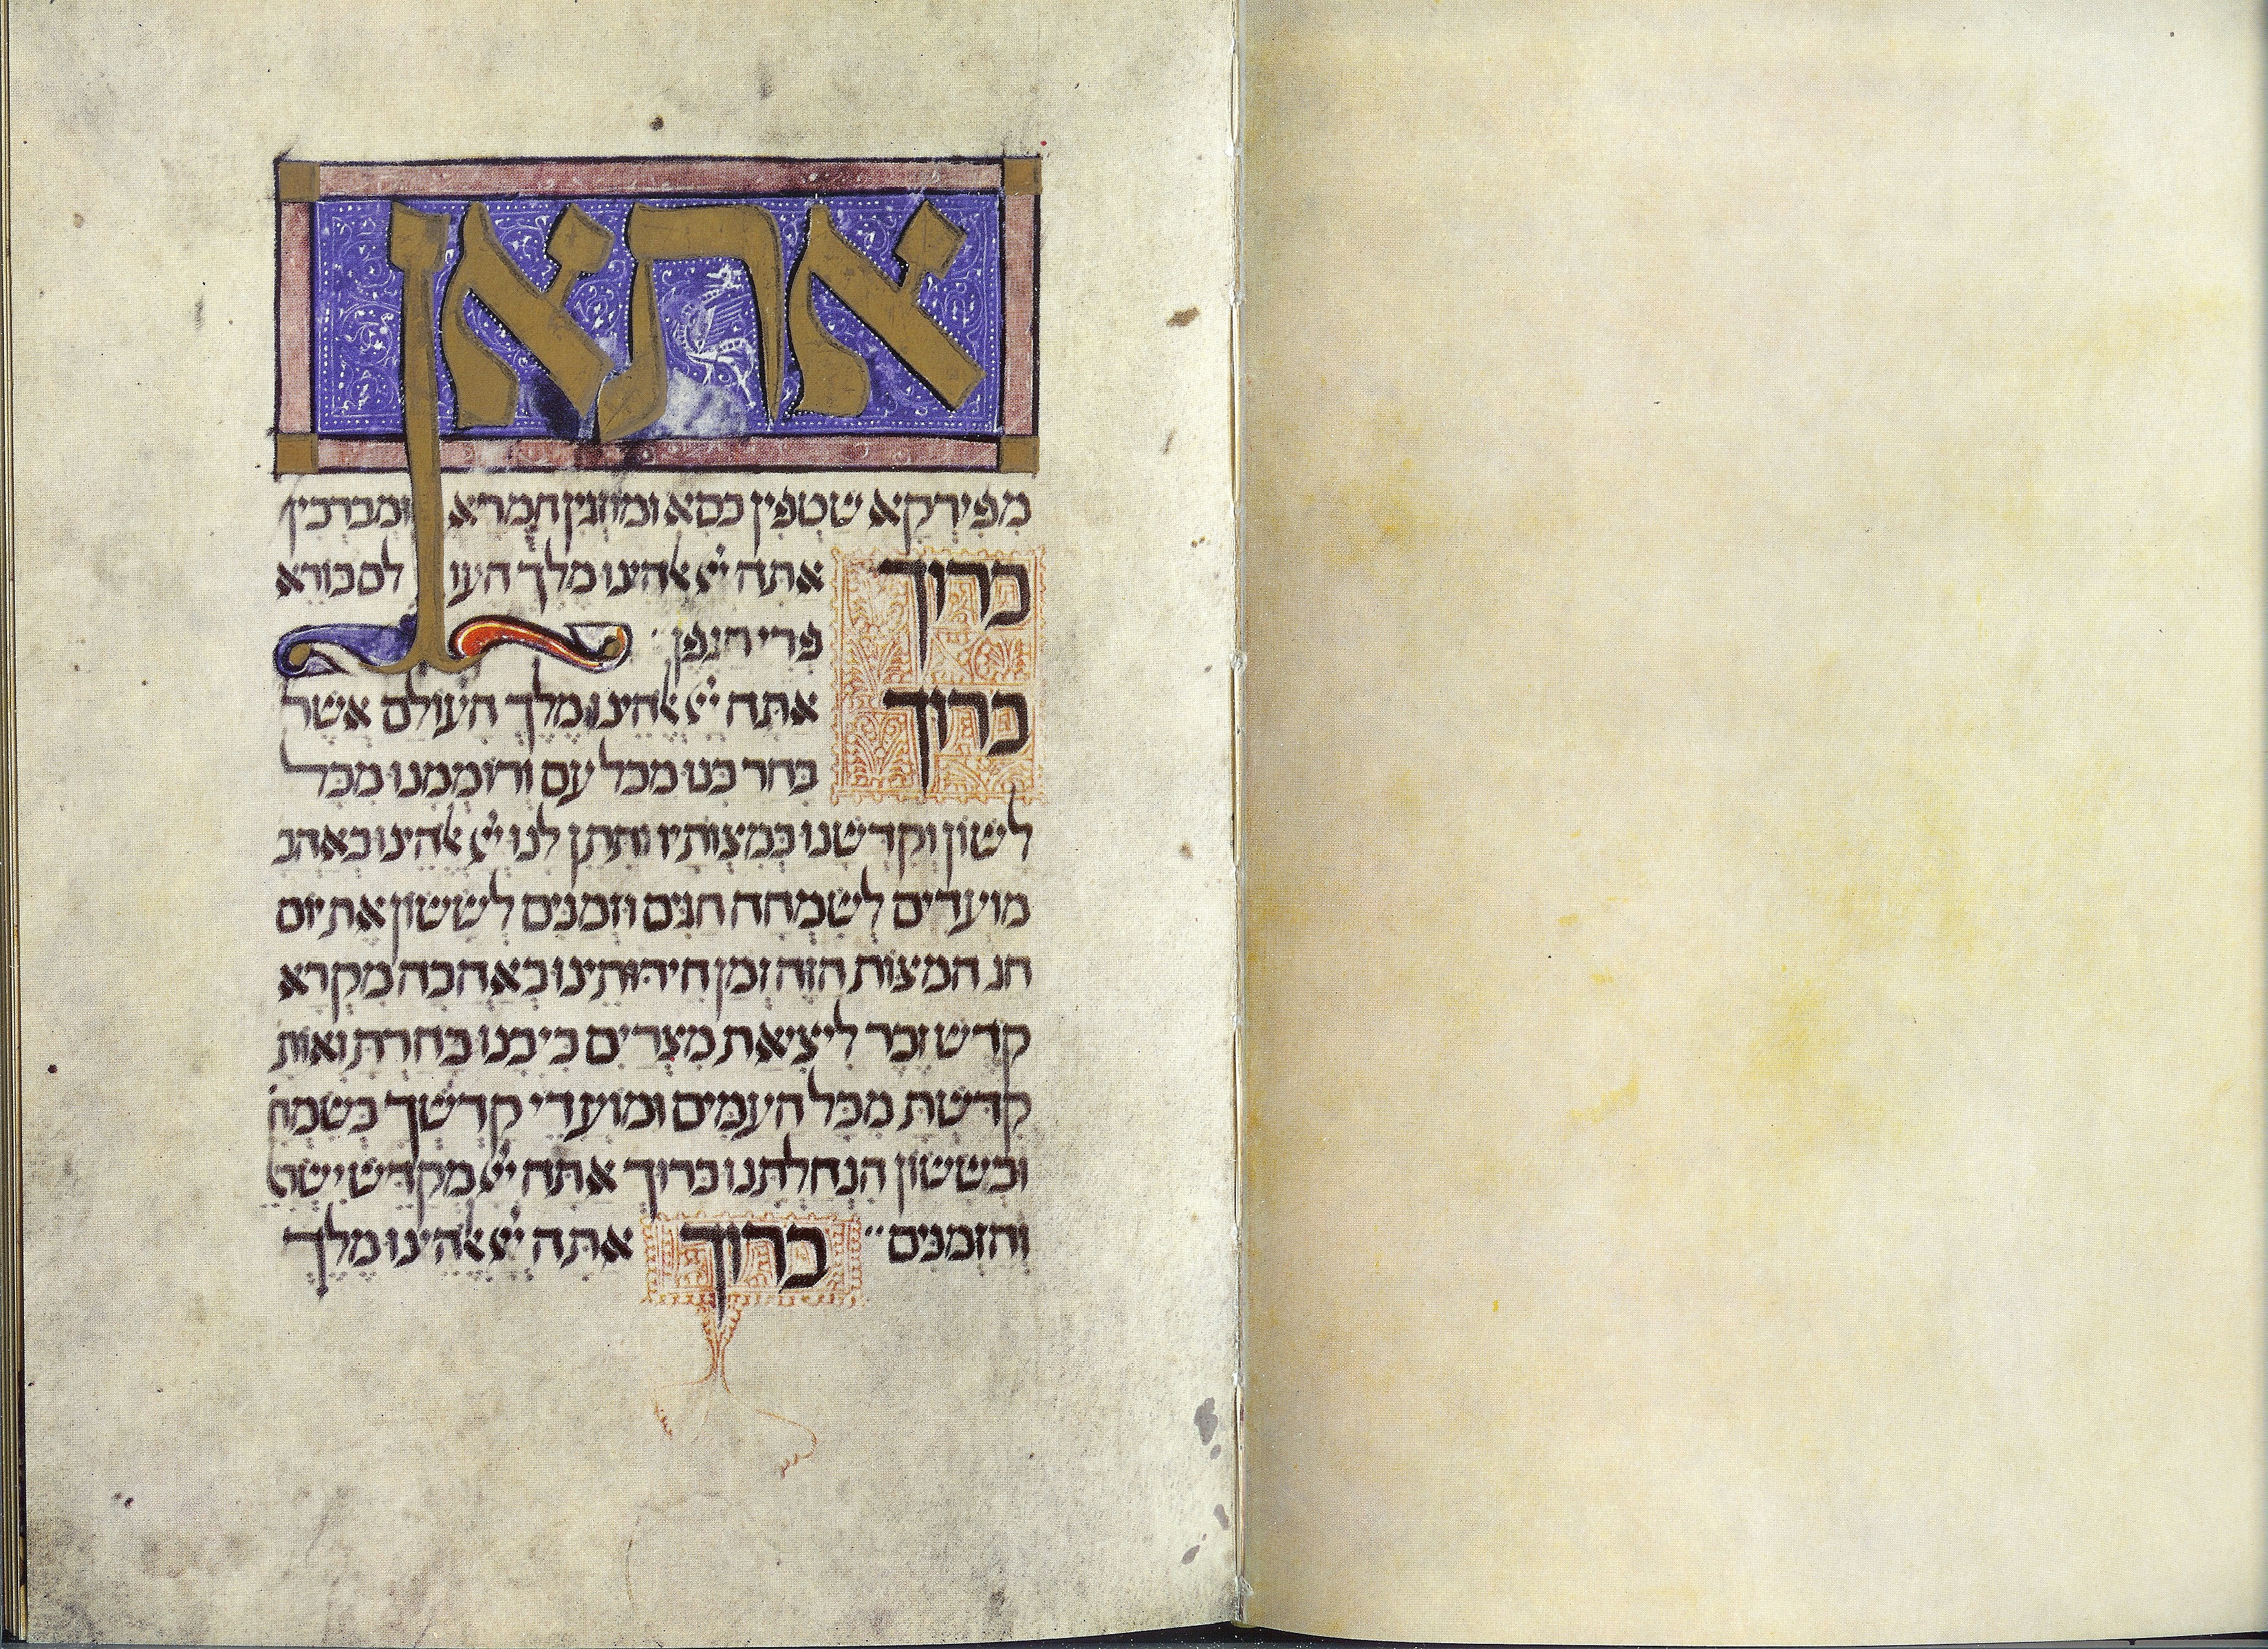 אתאן
מפירקא שטפין כסא ומוזגין חמרא ומברכין
ברוך אתה ייי אלהינו מלך העולם בורא
פרי הגפן
ברוך אתה ייי אלהינו מלך העולם אשר
בחר בנו מכל עם ורוממנו מכל
לשון וקדשנו במצותיו ותתן לנו ייי אלהינו באהב
מועדים לשמחה חגים וזמנים לששון את יום
חג המצות הזה זמן חירותינו באהבה מקרא
קדש זכר ליציאת מצרים כי בנו בחרת ואות
קדשת מכל העמים ומועדי קדשך בשמח
ובששון הנחלתנו ברוך אתה ייי מקדש ישר
והזמנים ברוך אתה ייי אלהינו מלך